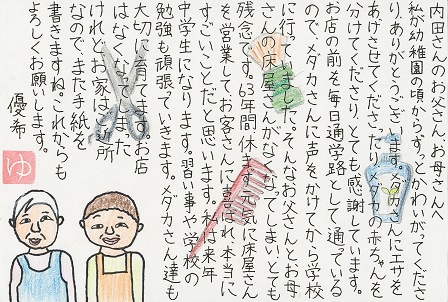 内田さんのお父さん、お母さんへ
私が幼稚園の頃からずっとかわいがってくださ
り、ありがとうございます。メダカさんにエサを
あげさせてくださったり、メダカの赤ちゃんを
分けてくださり、とても感謝しています。
お店の前を毎日通学路として通っている
ので、メダカさんに声をかけてから学校
に行ってました。そんなお父さんとお母
さんの床屋さんがなくなってしまい、とても
残念です。63年間休まず元気に床屋さん
を営業してお客さんに喜ばれ、本当に
すごいことだと思います。私は来年
中学生になります。習い事や学校の
勉強も頑張っていきます。メダカさん達も
大切に育てます。お店
はなくなりました
けれど、お家はご近所
なので、また手紙を
書きますね。これからも
よろしくお願いします。
優希
ゆ